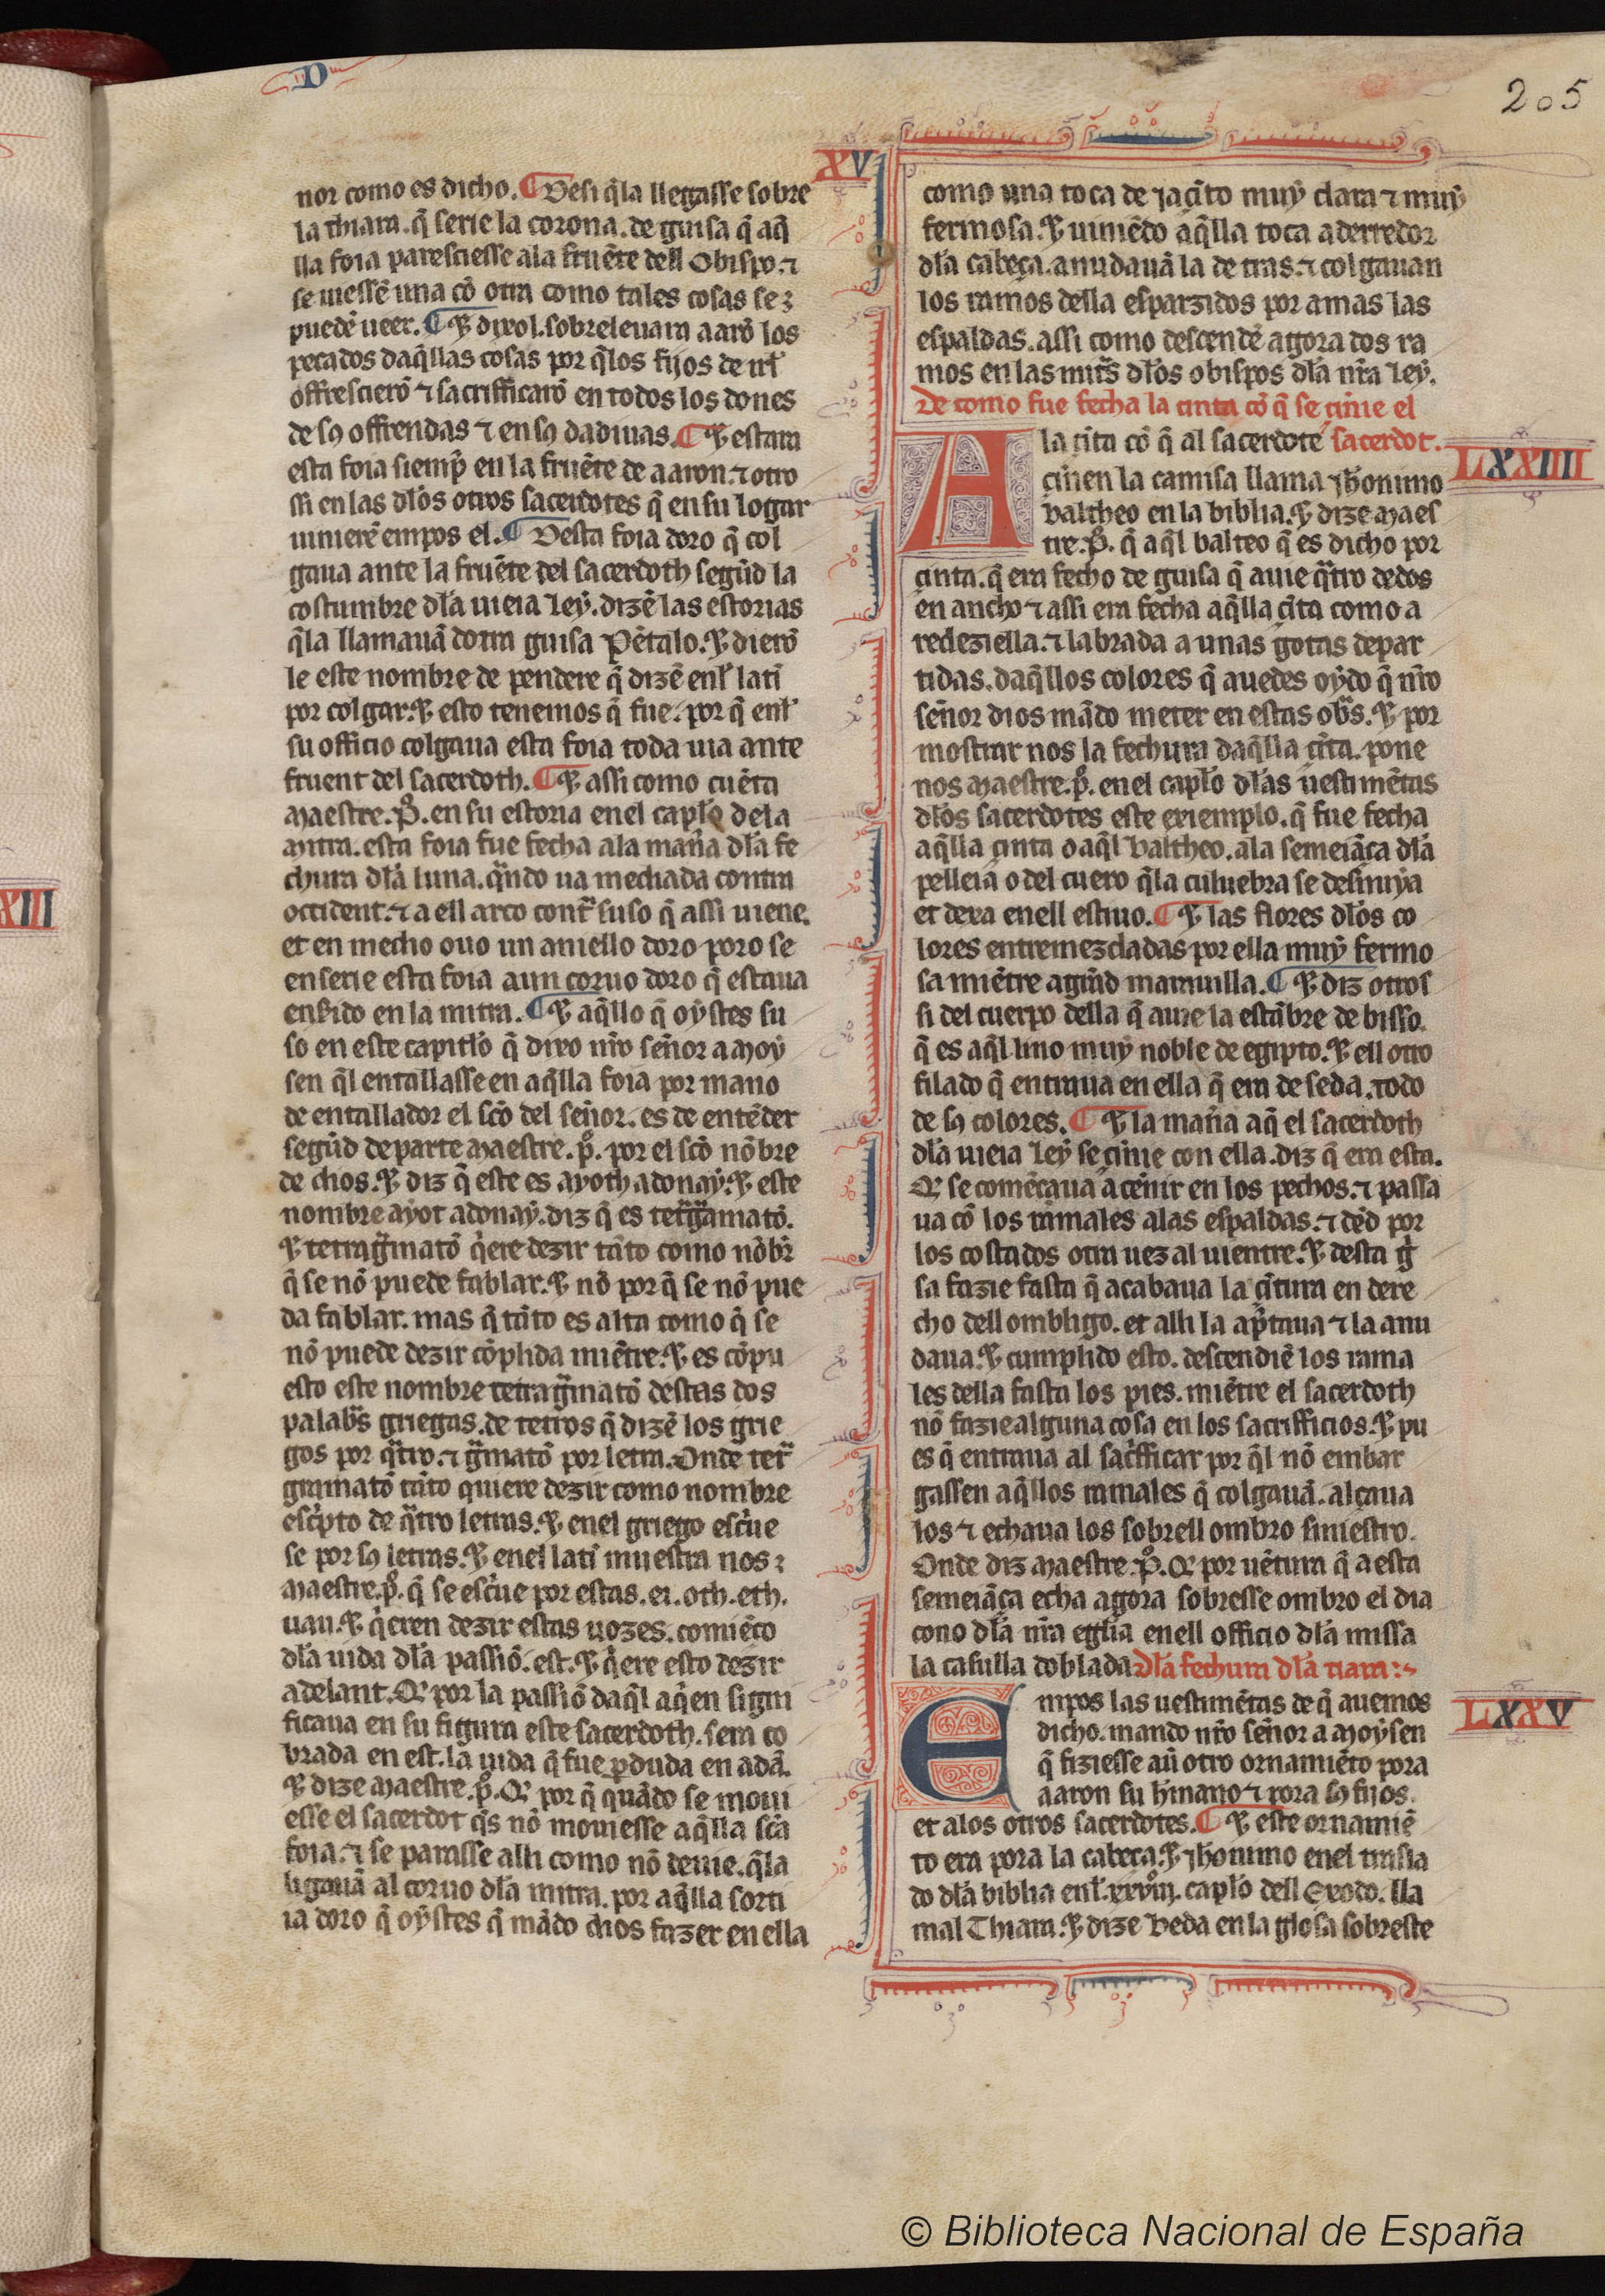 D
205
XV
nor como es dicho. ¶ Desi q̃la llegasse sobre
la thiara. q̃ serie la corona. de guisa q̃ aq̃
lla foia paresciesse ala fruẽte dell Obispo. ⁊
se uiessẽ una cõ otra como tales cosas se
puedẽ ueer. ¶ Et dixol. sobreleuara aarõ los
pecados daq̃llas cosas por q̃los fijos de irł
offrescierõ ⁊ sacrifficarõ en todos los dones
de sꝯ offrendas ⁊ en sꝯ dadiuas. ¶ Et estara
esta foia siemp̃ en la fruẽte de aaron. ⁊ otro
ssi en las dłos otros sacerdotes q̃ en su logar
uinierẽ empos el. ¶ Desta foia doro q̃ col
gaua ante la fruẽte del sacerdoth segũd la
costumbre dła uieia ley. dizẽ las estorias
q̃la llamauã dotra guisa Pẽtalo. Et dierõ
le este nombre de pendere q̃ dizẽ enł latĩ
por colgar. Et esto tenemos q̃ fue. por q̃ enł
su officio colgaua esta foia toda uia ante
fruent del sacerdoth. ¶ Et assi como cuẽta
maestre. P̊. en su estoria enel capłо dela
mitra. esta foia fue fecha ala mañа dła fe
chura dła luna. q̃ndo ua mechada contra
occident. ⁊ a ell arco cont̃ suso q̃ assi uiene.
et en mecho ouo un aniello doro poro se
enserie esta foia a un coruo doro q̃ estaua
enfito en la mitra. ¶ Et aq̃llo q̃ oystes su
so en este capitłо q̃ dixo nr̃o señor a moy
sen q̃l entallasse en aq̃lla foia por mano
de entallador el sc̃o del señor. es de entẽder
segũd departe maestre. p̊. por el sc̃o nõbre
de dios. Et diz q̃ este es ayoth adonay. Et este
nombre ayot adonay. diz q̃ es tetg̃amatõ.
Et tetrag̃matõ q̃ere dezir tãto como nõbr̃
q̃ se nõ puede fablar. Et nõ por q̃ se nõ pue
da fablar. mas q̃ tãto es alta como q̃ se
nõ puede dezir cõplida miẽtre. Et es cõpu
esto este nombre tetrag̃matõ destas dos
palabr̃s griegas. de tetros q̃ dizẽ los grie
gos por q̃tro. ⁊ g̃matõ por letra. Onde tet̃
gramatõ tãto quiere dezir como nombre
esc̃pto de q̃tro letras. Et enel griego esc̃ue
se por sꝯ letras. Et enel latĩ muestra nos
maestre. p̊. q̃ se esc̃ue por estas. ei. oth. eth.
uau. Et q̃eren dezir estas uozes. comiẽço
dła uida dła passiõ. est. Et q̃ere esto dezir
adelant. Que por la passiõ daq̃l aq̃en signi
ficaua en su figura este sacerdoth. sera co
brada en est. la uida q̃ fue p̱duda en adã.
Et dize maestre. p̊. Que por q̃ quãdo se moui
esse el sacerdot q̃s nõ mouiesse aq̃lla sc̃a
foia. ⁊ se parasse alli como nõ deuie. q̃la
ligauã al coruo dła mitra. por aq̃lla sorti
ia doro q̃ oystes q̃ mãdo dios fazer en ella
como una toca de jaçĩto muy clara ⁊ muy
fermosa. Et uiniẽdo aq̃lla toca aderredor
dła cabeça. anudauã la de tras. ⁊ colgauan
los ramos della esparzidos por amas las
espaldas. assi como descendẽ agora dos ra
mos en las mitr̃s dłos obispos dła nr̃a ley.
De como fue fecha la cinta cõ q̃ se cinie el
sacerdot.
LXXIIII
A la çĩta cõ q̃ al sacerdote
çiñen la camisa llama jhonimo
baltheo en la biblia. Et dize maes
tre. P̊. q̃ aq̃l balteo q̃ es dicho por
çinta. q̃ era fecho de guisa q̃ auie q̃tro dedos
en ancho ⁊ assi era fecha aq̃lla çĩta como a
redeziella. ⁊ labrada a unas gotas depar
tidas. daq̃llos colores q̃ auedes oydo q̃ nr̃o
señor dios mãdo meter en estas obr̃s. Et por
mostrar nos la fechura daq̃lla çĩta. pone
nos maestre. p̊. enel capłо dłas uestimẽtas
dłos sacerdotes este exiemplo. q̃ fue fecha
aq̃lla çinta o aq̃l baltheo. ala semeiãça dła
pelleia o del cuero q̃la culuebra se desnuya
et dexa enell estiuo. ¶ Et las flores dłos co
lores entremezcladas por ella muy fermo
sa miẽtre a grãd marauilla. ¶ Et diz otros
si del cuerpo della q̃ auie la estãbre de bisso.
q̃ es aq̃l lino muy noble de egipto. Et ell otro
filado q̃ entraua en ella q̃ era de seda. todo
de sꝯ colores. ¶ Et la mañа aq̃ el sacerdoth
dła uieia ley se çinie con ella. diz q̃ era esta.
Que se comẽçaua a çenir en los pechos. ⁊ passa
ua cõ los ramales alas espaldas. ⁊ dẽd por
los costados otra uez al uientre. Et desta g̃
sa fazie fasta q̃ acabaua la çĩtura en dere
cho dell ombligo. et alli la ap̃taua ⁊ la anu
daua. Et cumplido esto. descendiẽ los rama
les della fasta los pies. miẽtre el sacerdoth
nõ fazie alguna cosa en los sacrifficios. Et pu
es q̃ entraua al sac̃fficar por q̃l nõ embar
gassen aq̃llos ramales q̃ colgauã. alçaua
los ⁊ echaua los sobrell ombro siniestro.
Onde diz maestre. P̊. Que por uẽtura q̃ a esta
semeiãça echa agora sobresse ombro el dia
cono dła nr̃a eglia enell officio dła missa
la casulla doblada. Dła fechura dła tiara:
LXXV
Empos las uestimẽtas de q̃ auemos
dicho. mando nr̃o señor a moysen
q̃ fiziesse aũ otro ornamiẽto pora
aaron su h̃mano ⁊ pora sꝯ fijos.
et alos otros sacerdotes. ¶ Et este ornamiẽ
to era pora la cabeça. Et jhonimo enel trasla
do dła biblia enł. xxviij. capłо dell Exodo. lla
mal Thiara. Et dize Beda en la glosa sobreste
XIII
© Biblioteca Nacional de España